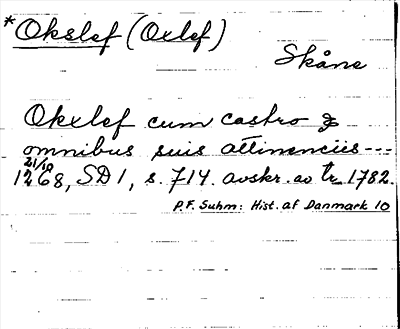 *Okslef (Oxlef)
Skåne
Okxlef cum castro &
omnibus suis attinenciis ---
21/10
1268, SD 1, s. 714. avskr. av tr. 1782.
P.F. Suhm: Hist. af Danmark 10